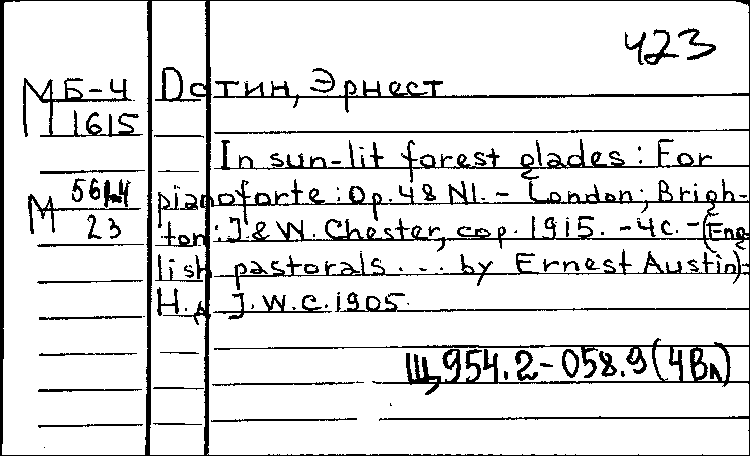 423
М Б-4 Остин, Эрнест
1615
In sun-lit forest glades: For
М 23 pianoforte: Op. 48 N1. - London; Brigh-
ton: J. & W. Chester, cop. 1915. - 4 с. - (Eng-
lish pastorals... by Ernest Austin). -
Н.д. J.W.C. 1905.
Щ954.2-058.9(4Вл)